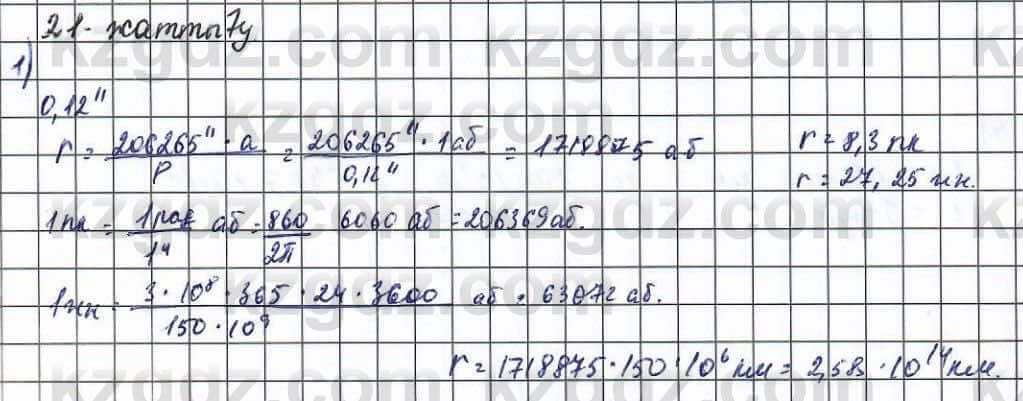 21-жаттығу
1)
0,12"
r = 206265" · a / p = 206265" · 1 аб / 0,12" = 1718875 аб
r = 8,3 пк
r = 27,25 жж.
1пк = 1рад / 1" аб = 860 / 2π 6060 аб = 206369 аб.
1жж = 3 · 10⁸ · 365 · 24 · 3600 / 150 · 10⁹ аб = 63072 аб.
r = 1718875 · 150 · 10⁶ км = 2,58 · 10¹⁴ км.
kzgdz.com